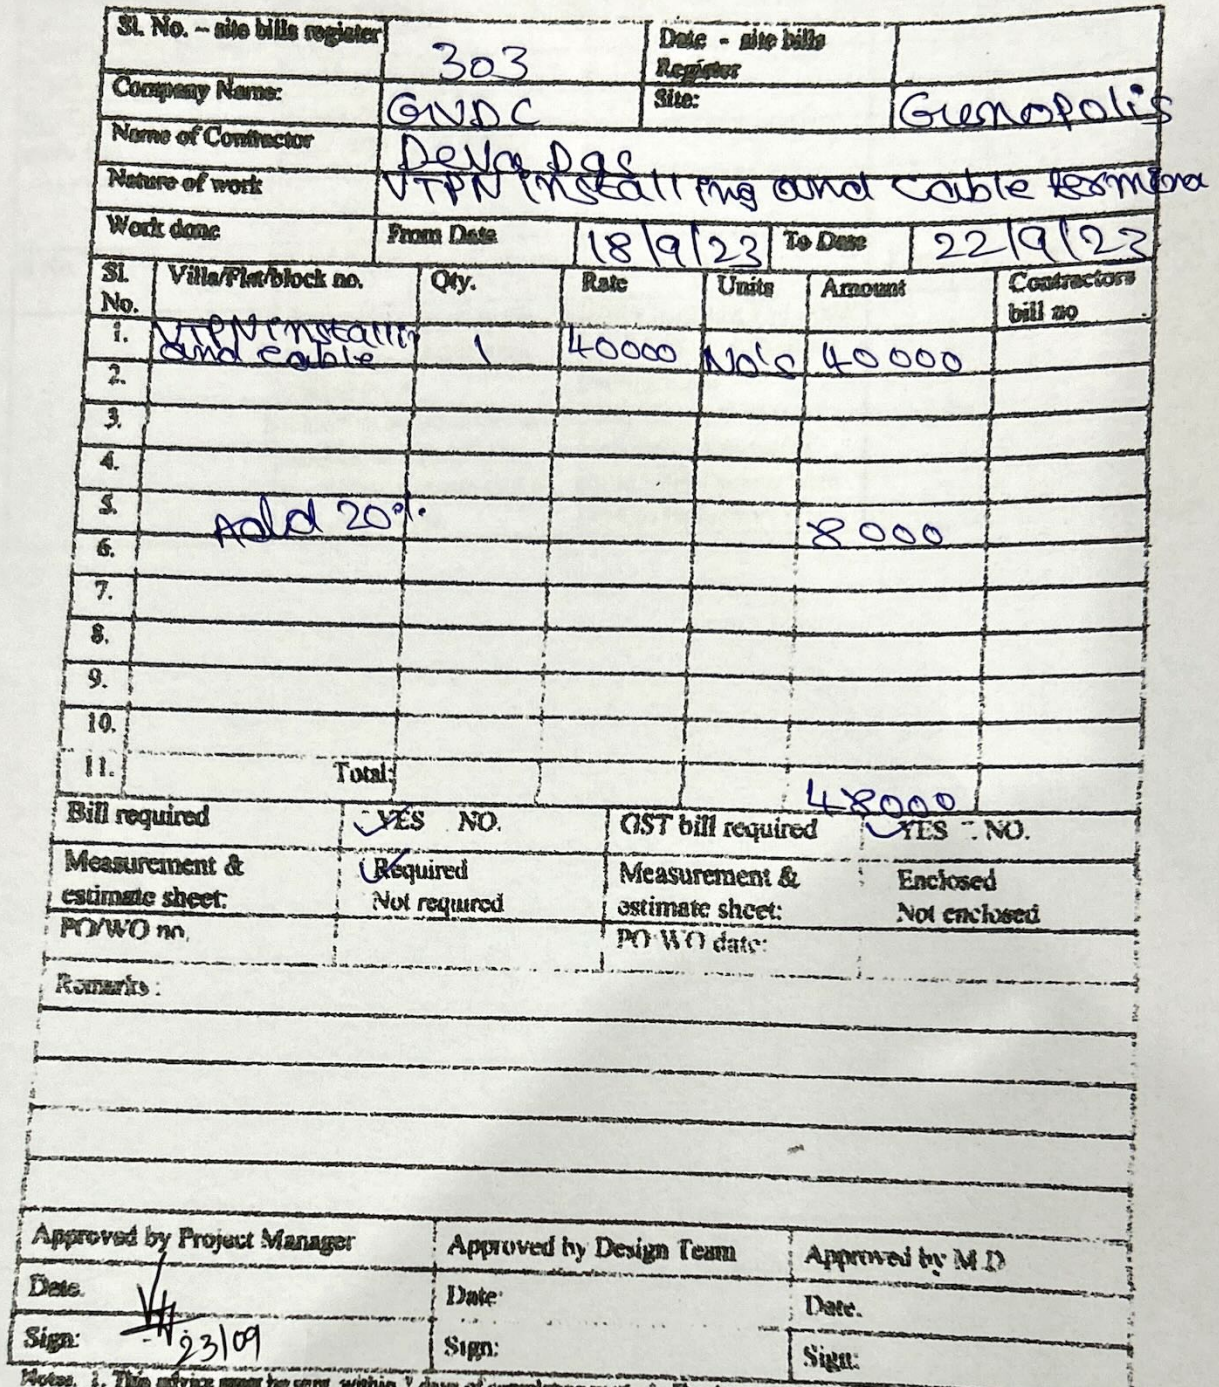 Sl. No. – site bills register 303 Date - site bills Register
Company Name: GVDC Site: Genopolis
Name of Contractor Deva Das
Nature of work VTPN installing and cable termina
Work done From Date 18/9/23 To Date 22/9/23
Sl. No. Villa/Flat/block no. Qty. Rate Units Amount Contractors bill no
1. VTPN installin and cable 1 40000 No's 40000
2.
3.
4.
5. Add 20% 8000
6.
7.
8.
9.
10.
11. Total: 48000
Bill required YES NO. GST bill required YES - NO.
Measurement & estimate sheet: Required Not required Measurement & estimate sheet: Enclosed Not enclosed
PO/WO no. PO/WO date:
Remarks :
Approved by Project Manager Approved by Design Team Approved by M.D
Date. Date: Date.
Sign: 23/09 Sign: Sign:
Notes. 1. This advice must be sent within 7 days of